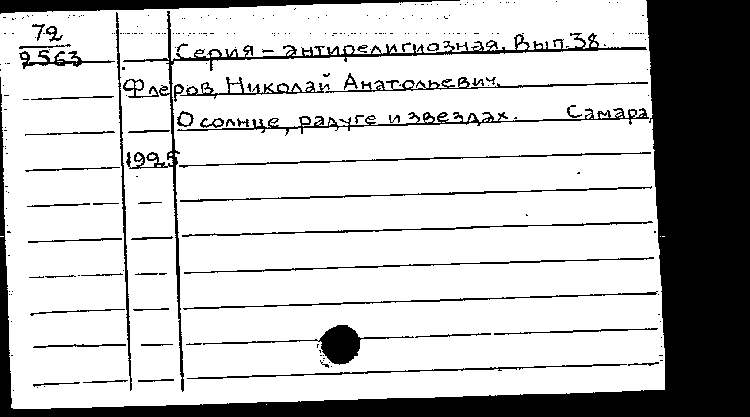 72
2563
Серия – антирелигиозная. Вып. 38.
Флеров, Николай Анатольевич.
О солнце, радуге и звездах. Самара,
1925